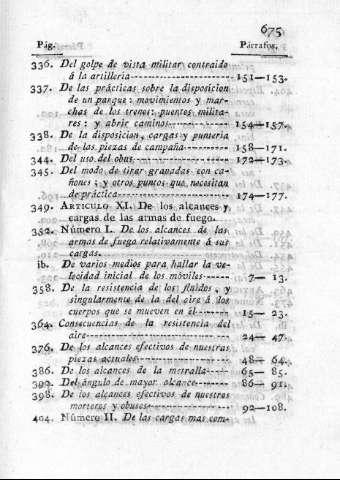 675
Pág. Párrafos.
336. Del golpe de vista militar contraido
á la artilleria ---- 151—153.
337. De las prácticas sobre la disposicion
de un parque: movimientos y mar-
chas de los trenes: puentes milita-
res: y abrir caminos ---- 154—157.
338. De la disposicion, cargas y punteria
de las piezas de campaña ---- 158—171.
344. Del uso del obus ---- 172—173.
345. Del modo de tirar granadas con ca-
ñones; y otros puntos que necesitan
de práctica ---- 174—177.
349. ARTICULO XI. De los alcances y
cargas de las armas de fuego.
352. Número I. De los alcances de las
armas de fuego relativamente á sus
cargas.
ib. De varios medios para hallar la ve-
locidad inicial de los móviles ---- 7— 13.
358. De la resistencia de los fluidos, y
singularmente de la del aire á los
cuerpos que se mueven en él ---- 15— 23.
364. Consecuencias de la resistencia del
aire ---- 24— 47.
376. De los alcances efectivos de nuestras
piezas actuales ---- 48— 64.
386. De los alcances de la metralla ---- 65— 85.
392. Del ángulo de mayor alcance ---- 86— 91.
398. De los alcances efectivos de nuestros
morteros y obuses ---- 92—108.
404. Número II. De las cargas mas com-